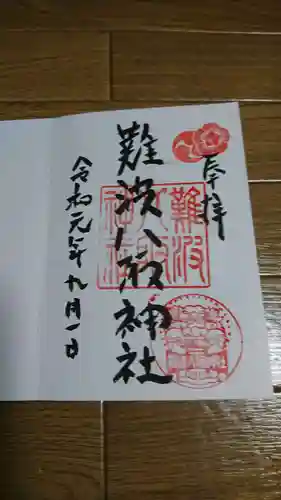 奉拝
難波八阪神社
令和元年九月一日
難波
八阪
神社